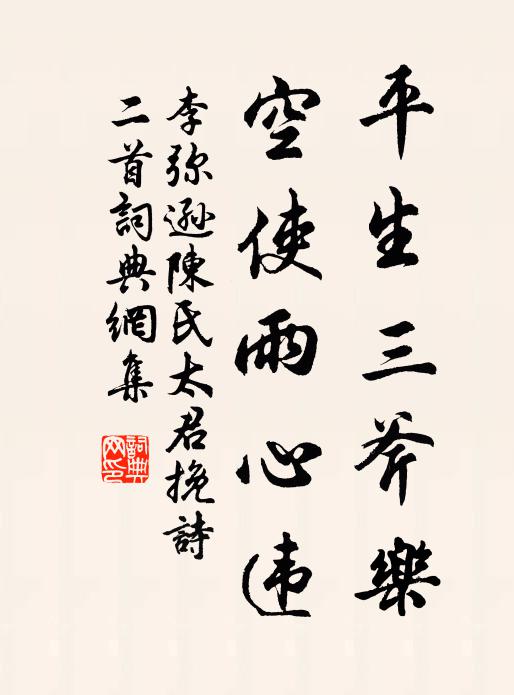 平生三斧樂
空使雨心违
李弥遜陳氏太君挽詩
二首詞典網集
詞典
网印